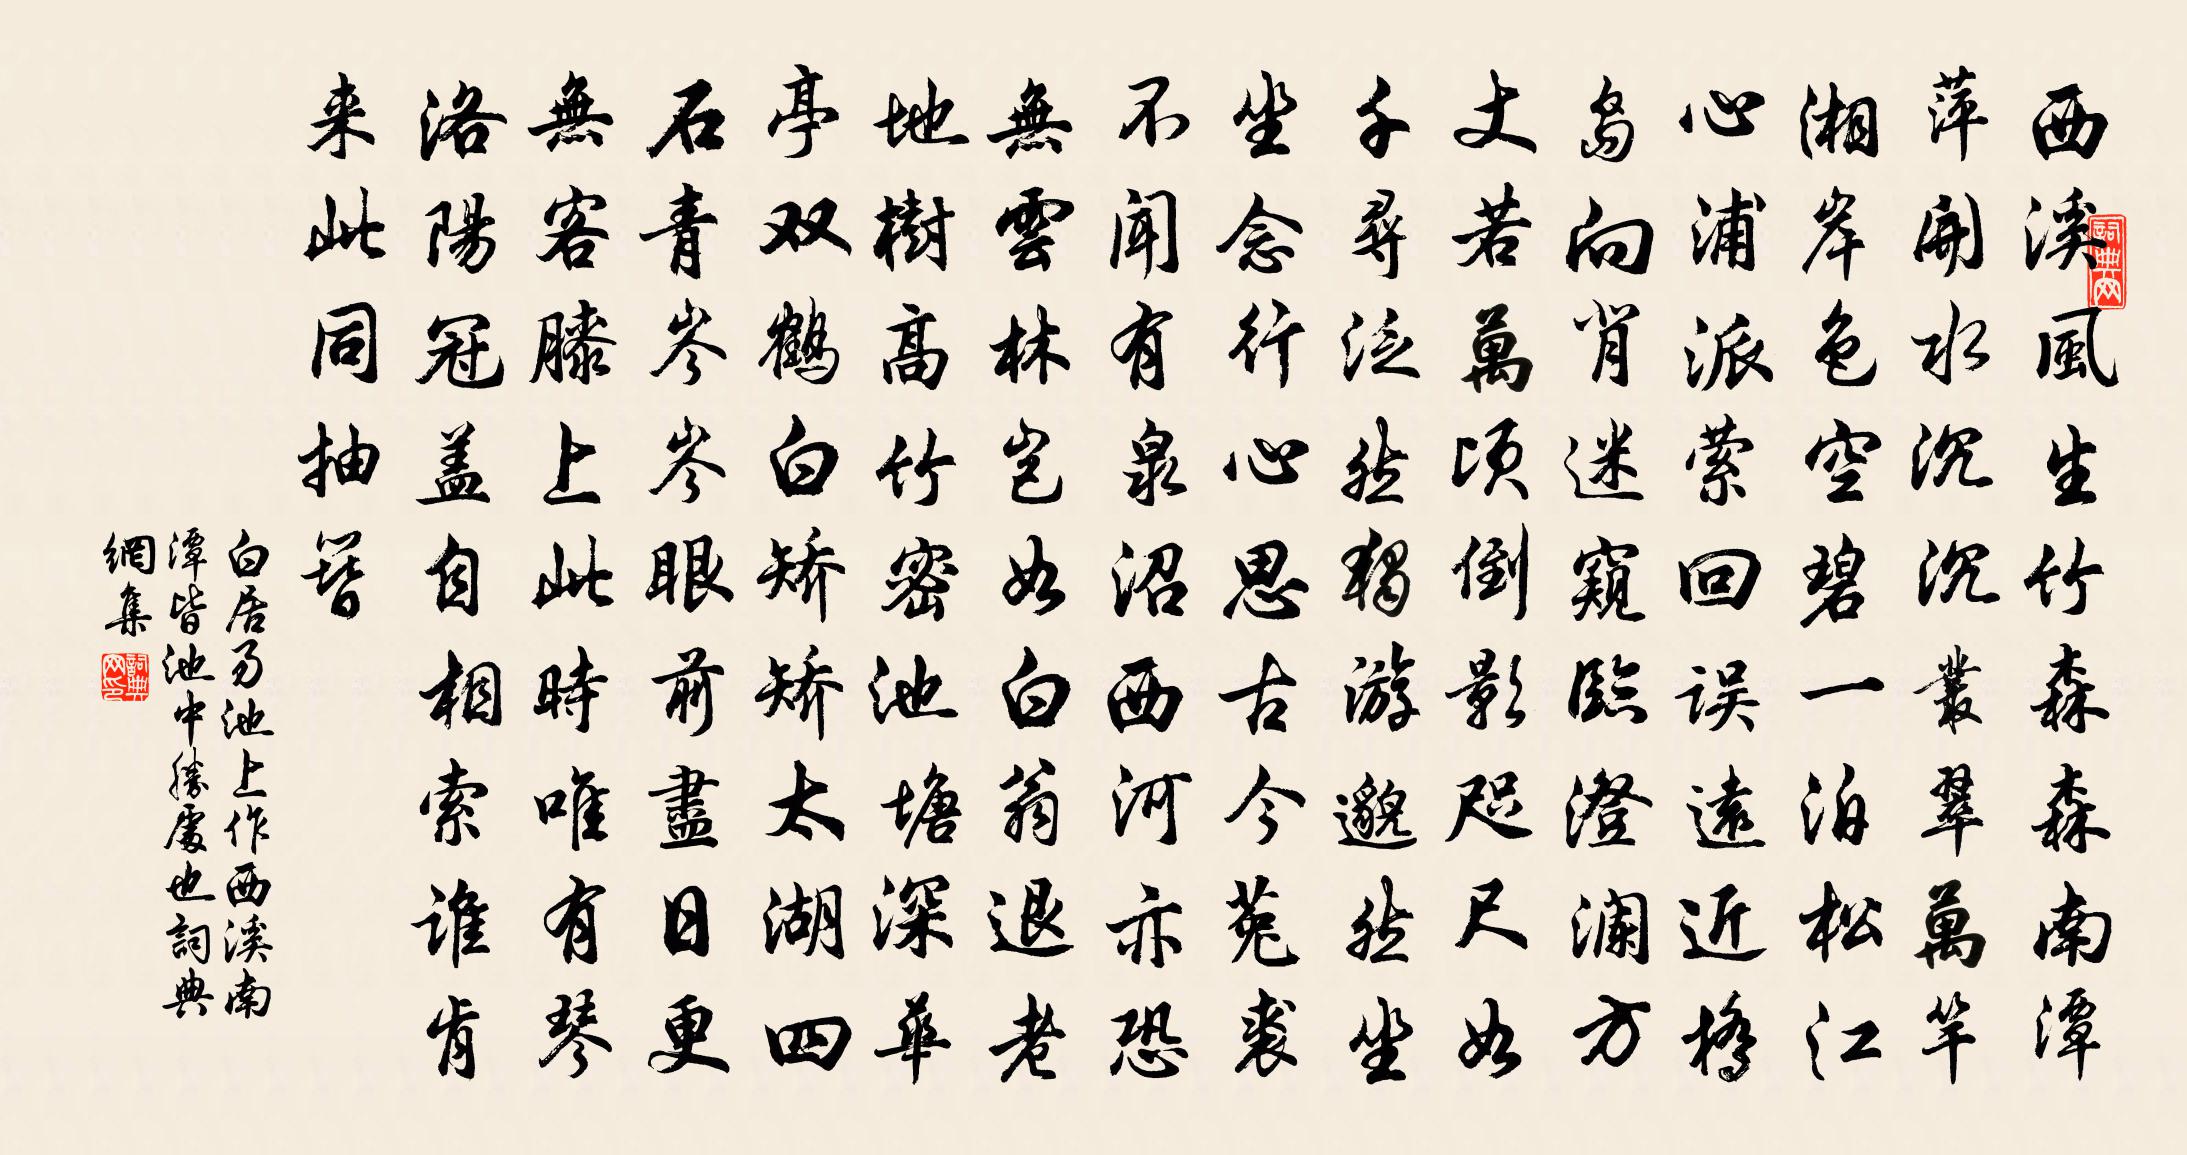 西溪風生竹森森南潭
萍開水沉沉叢翠萬竿
湘岸色空碧一泊松江
心浦派萦回误遠近橋
島向背迷窺臨澄澜方
丈若萬顷倒影咫尺如
千尋泛然獨游邈然坐
坐念行心思古今菟裘
不聞有泉沼西河亦恐
無雲林豈如白翁退老
地樹高竹密池塘深華
亭双鶴白矫矫太湖四
石青岑岑眼前盡日更
無客膝上此時唯有琴
洛陽冠盖自相索谁肯
来此同抽簪
白居易池上作西溪南
潭皆池中勝處也詞典
網集
詞典网
詞典网印